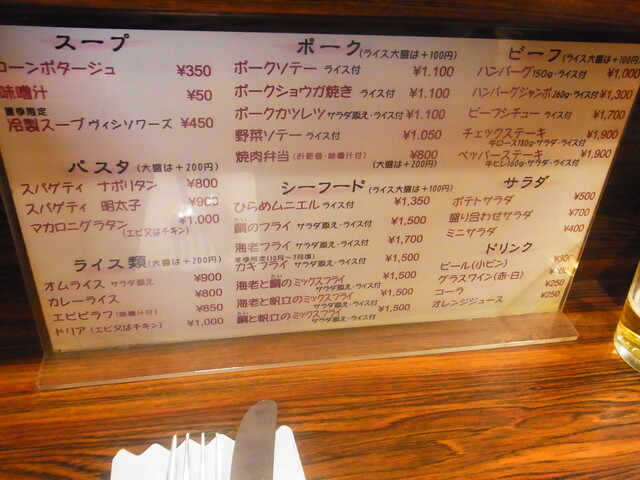 スープ
コーンポタージュ ¥350
味噌汁 ¥50
夏季限定
冷製スープ ヴィシソワーズ ¥450
パスタ (大盛は+200円)
スパゲティ ナポリタン ¥800
スパゲティ 明太子 ¥900
マカロニグラタン ¥1,000
(エビ又はチキン)
ライス類 (大盛は+200円)
オムライス サラダ添え ¥900
カレーライス ¥800
エビピラフ (味噌汁付) ¥850
ドリア (エビ又はチキン) ¥1,000
ポーク (ライス大盛は+100円)
ポークソテー ライス付 ¥1.100
ポークショウガ焼き ライス付 ¥1.100
ポークカツレツ サラダ添え・ライス付 ¥1.100
野菜ソテー ライス付 ¥1.050
焼肉弁当 (お新香・味噌汁付) ¥800
(大盛は+200円)
シーフード (ライス大盛は+100円)
ひらめムニエル ライス付 ¥1,350
たい
鯛のフライ サラダ添え・ライス付 ¥1,500
海老フライ サラダ添え・ライス付 ¥1,700
冬季限定(10月~3月頃)
カキフライ サラダ添え・ライス付 ¥1,500
たい
海老と鯛のミックスフライ ¥1,500
サラダ添え・ライス付
海老と帆立のミックスフライ ¥1,500
サラダ添え・ライス付
たい
鯛と帆立のミックスフライ ¥1,500
サラダ添え・ライス付
ビーフ (ライス大盛は+100円)
ハンバーグ 150g・ライス付 ¥1,000
ハンバーグジャンボ 260g・ライス付 ¥1,300
ビーフシチュー ライス付 ¥1,700
チェックステーキ ¥1,900
牛ロース180g・サラダ・ライス付
ペッパーステーキ ¥1,900
牛ヒレ160g・サラダ・ライス付
サラダ
ポテトサラダ ¥500
盛り合わせサラダ ¥700
ミニサラダ ¥400
ドリンク
ビール(小ビン)
グラスワイン(赤・白)
コーラ ¥250
オレンジジュース ¥250